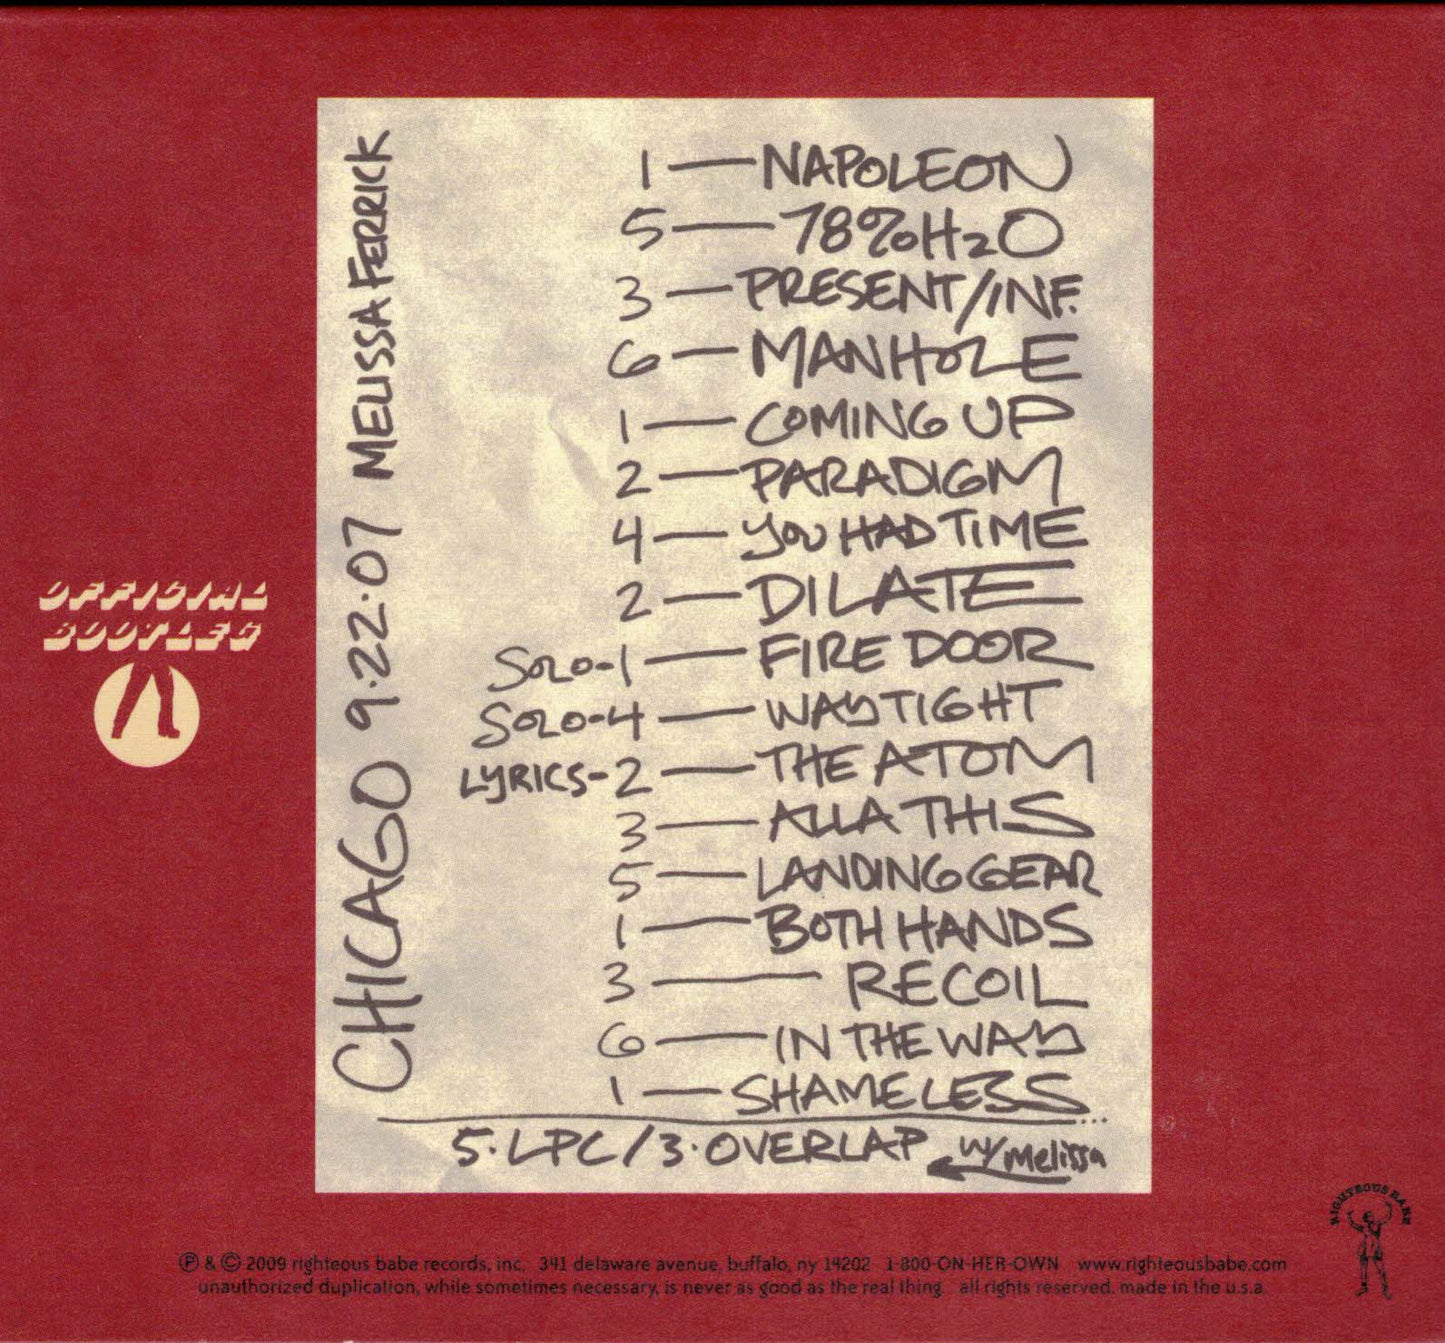 CHICAGO 9.22.07 MELISSA FERRICK
1 — NAPOLEON
5 — 78% H2O
3 — PRESENT/INF.
6 — MANHOLE
1 — COMING UP
2 — PARADIGM
4 — YOU HAD TIME
2 — DILATE
SOLO-1 — FIRE DOOR
SOLO-4 — WAY TIGHT
LYRICS-2 — THE ATOM
3 — ALLA THIS
5 — LANDING GEAR
1 — BOTH HANDS
3 — RECOIL
6 — IN THE WAY
1 — SHAMELESS...
5. LPC / 3. OVERLAP w/ Melissa
OFFICIAL
BOOTLEG
RIGHTEOUS BABE
℗ & © 2009 righteous babe records, inc. 341 delaware avenue, buffalo, ny 14202 1-800-ON-HER-OWN www.righteousbabe.com
unauthorized duplication, while sometimes necessary, is never as good as the real thing. all rights reserved. made in the u.s.a.